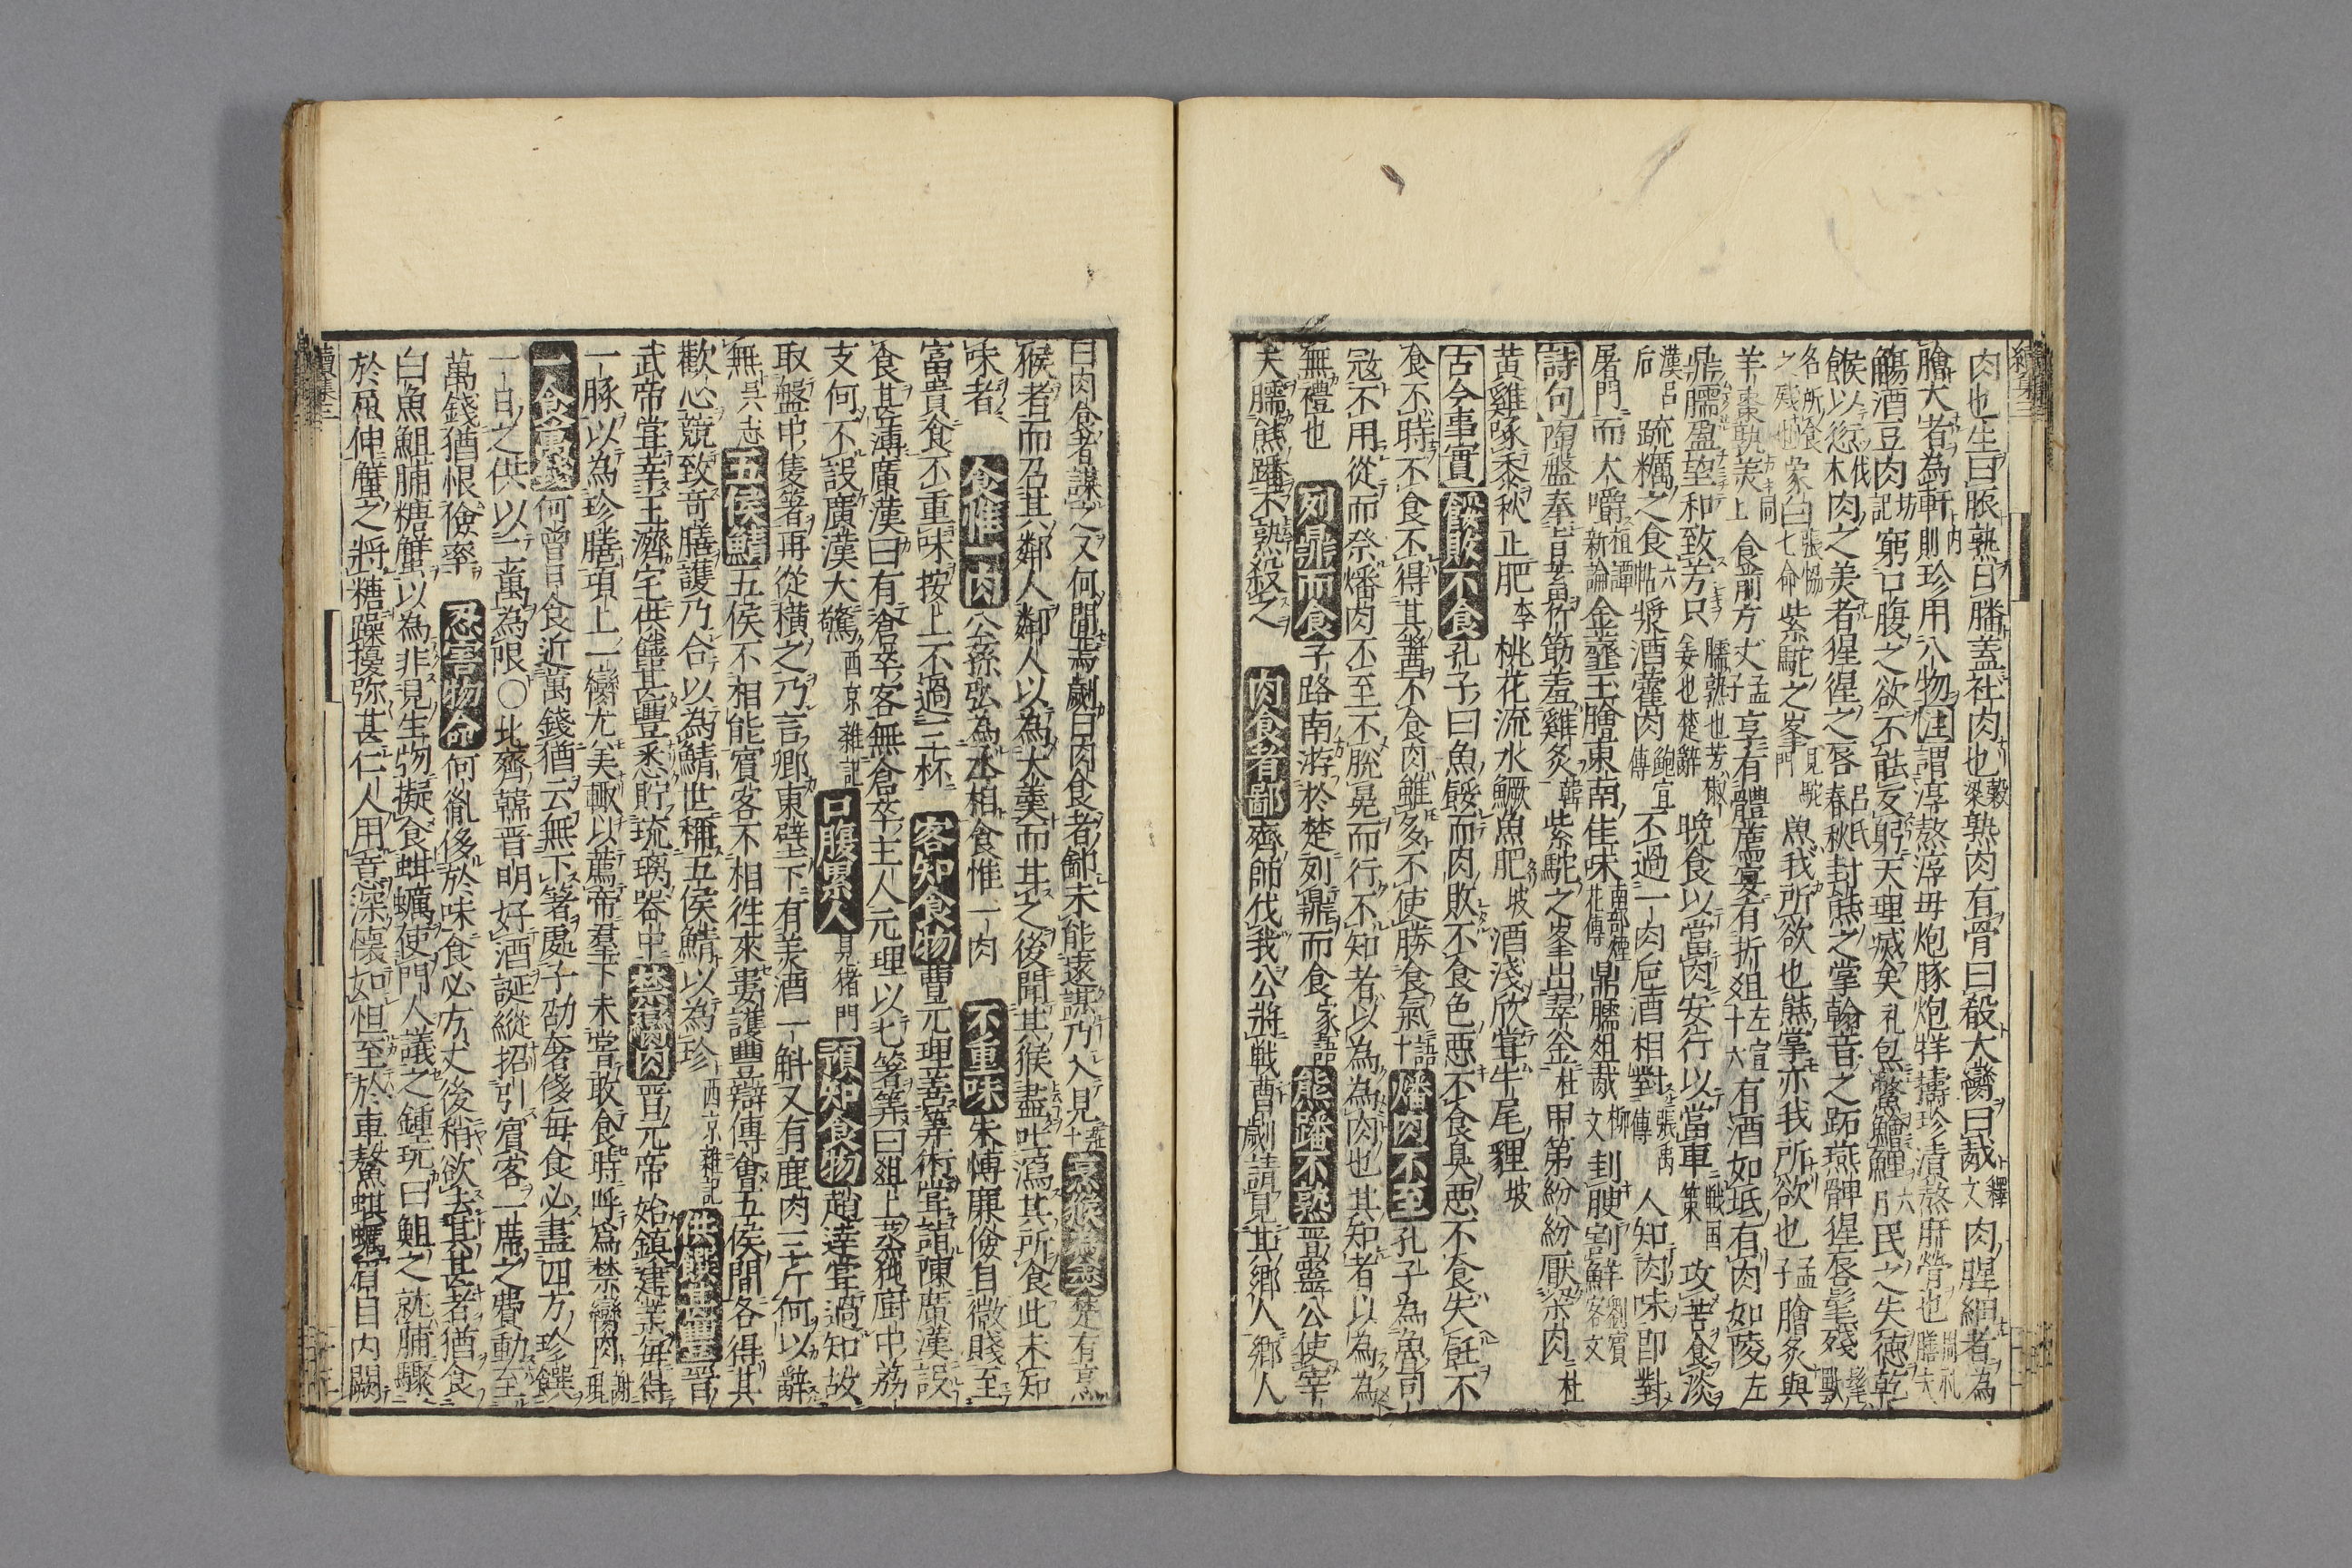 肉也生曰脤熟曰膰蓋社肉也穀梁熟肉有骨曰殽大臠曰胾釋文肉腥細者為
膾大者為軒內則珍用八物注謂淳熬淳毋炮豚炮牂擣珍漬熬肝膋也周礼膳夫
觴酒豆肉坊記窮口腹之欲不能反躬天理滅矣礼包鱉鱠鯉六月民之失德乾
餱以愆伐木肉之美者猩猩之唇呂氏春秋封熊之掌翰音之跖燕髀猩唇髦殘
名所食之殘也象白張恊七命紫駝之峯見駝門魚我所欲也熊掌亦我所欲也孟子膾炙與
羊棗孰美上同食前方丈孟子享有體薦宴有折俎左宣十六有酒如坻有肉如陵左
鼎臑盈望和致芳只臑熟也芳椒姜也楚辭晚食以當肉安行以當車戰国策攻苦食淡
漢呂后疏糲之食六帖漿酒藿肉鮑宣傳不過一肉卮酒相對張禹傳人知肉味即對
屠門而大嚼桓譚新論金虀玉膾東南佳味南部煙花傳鼎臑俎胾柳文刲腴割鮮劉賓客文
詩句陶盤奉旨蓄竹筯羞雞炙韓紫駝之峯出翠釜杜甲第紛紛厭粱肉杜
黃雞啄黍秋正肥李桃花流水鱖魚肥坡酒淺欣嘗牛尾貍坡
古今事實餒敗不食孔子曰魚餒而肉敗不食色惡不食臭惡不食失飪不
食不時不食不得其醬不食肉雖多不使勝食氣語十膰肉不至孔子為魯司
寇不用從而祭燔肉不至不脫冕而行不知者以為為肉也其知者以為為
無禮也 列鼎而食子路南游於楚列鼎而食家語熊蹯不熟晉靈公使宰
夫臑熊蹯不熟殺之 肉食者鄙齊師伐我公將戰曹劌請見其鄉人鄉人
曰肉食者謀之又何間焉劌曰肉食者鄙未能遠謀乃入見烹猴為羹楚有烹
猴者而召其鄰人鄰人以為犬羹而甘之後聞其猴盡吐瀉其所食此未知
味者 食惟一肉公孫弘為丞相食惟一肉 不重味朱愽廉儉自微賤至
富貴食不重味按上不過三杯 客知食物曹元理善筭術嘗詣陳廣漢設
食甚薄廣漢曰有倉卒客無倉卒主人元理以七箸筭曰俎上蒸㹠廚中荔
支何不設廣漢大驚西京雜記口腹累人見猪門預知食物趙達嘗過知故
取盤中隻箸再從橫之乃言卿東壁下有美酒一斛又有鹿肉三斤何以辭
無吳志五侯鯖五侯不相能賓客不相徃來婁護豐辯傳會五侯間各得其
歡心競致奇膳護乃合以為鯖世稱五侯鯖以為珍西京雜記供饌甚豐晉
武帝嘗幸王濟宅供饌甚豐悉貯琉璃器中禁臠肉晋元帝始鎮建業每得
一豚以為珍膳項上一臠尤美輒以薦帝羣下未嘗敢食時呼為禁臠肉謝琨
一食萬錢何曾日食近萬錢猶云無下箸處子劭奢侈每食必盡四方珍饌
一日之供以二萬為限〇北齊韓晋明好酒誕縱招引賓客一席之費動至
萬錢猶恨儉率 忍害物命何胤侈於味食必方丈後稍欲去其甚者猶食
白魚䱇脯糖蟹以為非見生物擬食蚶蠣使門人議之鍾玩曰䱇之就脯驟
於屈伸蟹之將糖躁擾弥甚仁人用意深懷如怛至於車螯蚶蠣眉目內闕